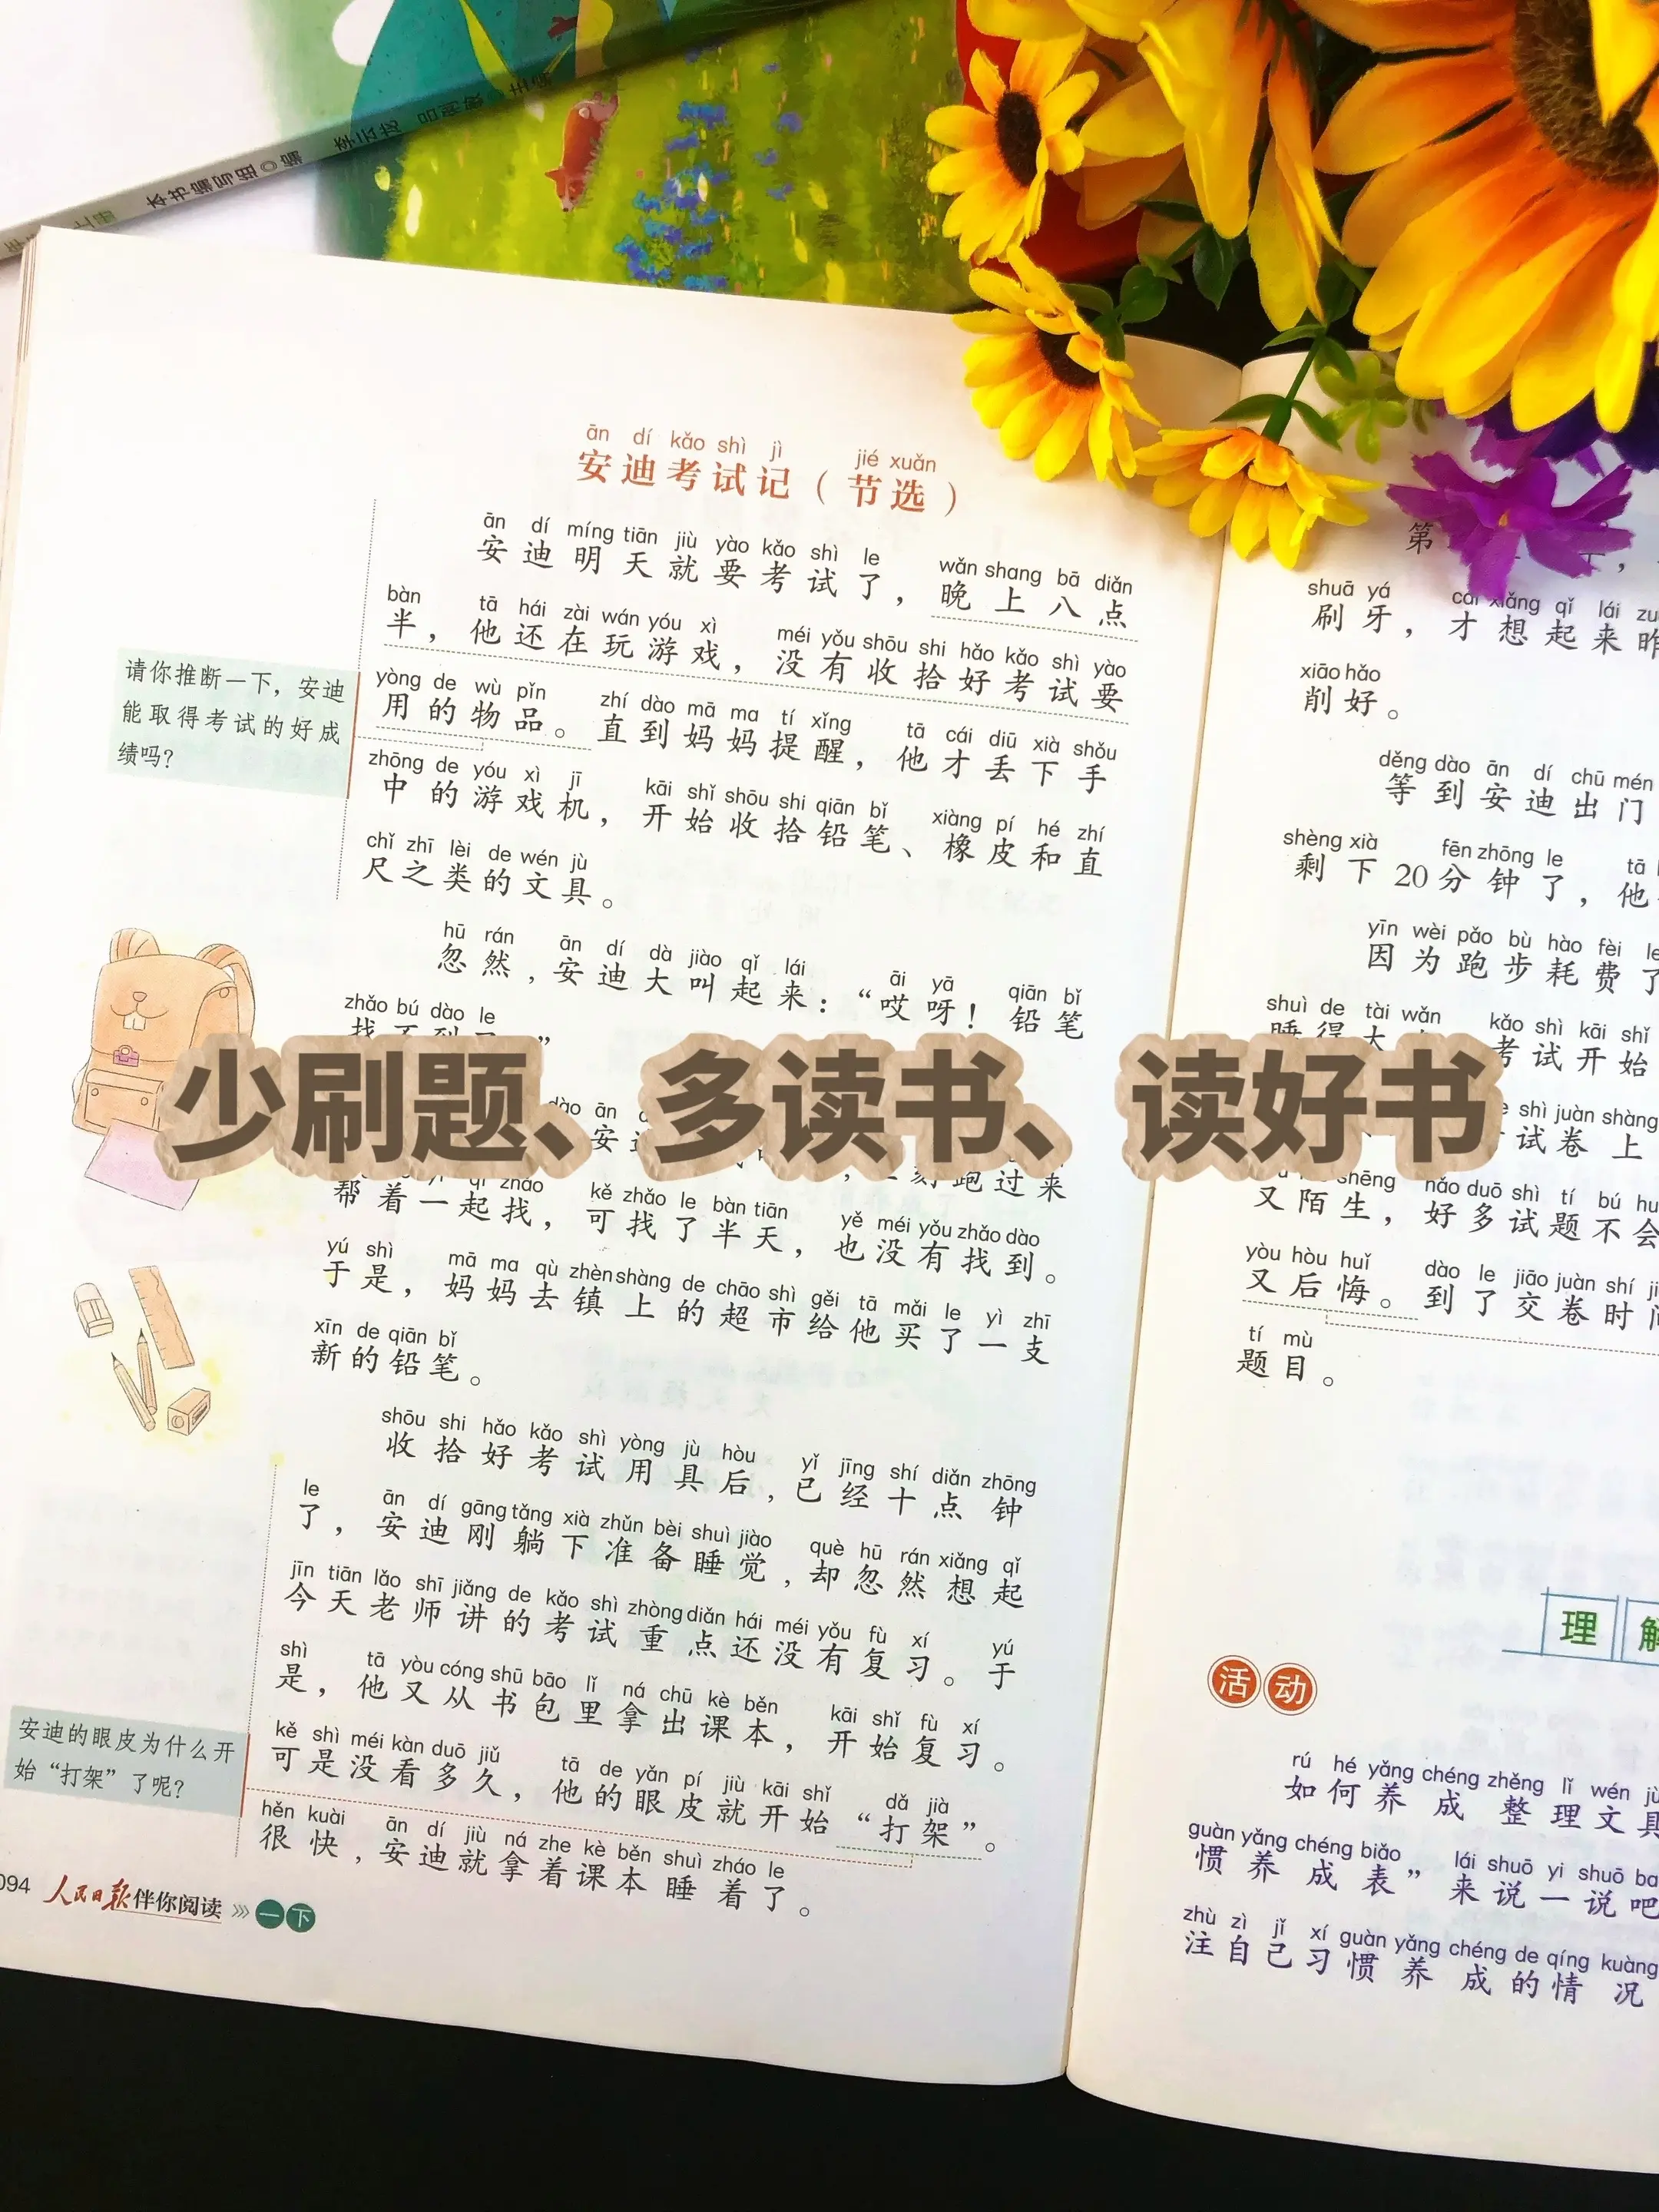 本书编写组◎编 李云龙
ān dí kǎo shì jì jié xuǎn
安迪考试记（节选）
ān dí míng tiān jiù yào kǎo shì le wǎn shang bā diǎn
安迪明天就要考试了，晚上八点
bàn tā hái zài wán yóu xì méi yǒu shōu shi hǎo kǎo shì yào
半，他还在玩游戏，没有收拾好考试要
yòng de wù pǐn zhí dào mā ma tí xǐng tā cái diū xià shǒu
用的物品。直到妈妈提醒，他才丢下手
zhōng de yóu xì jī kāi shǐ shōu shi qiān bǐ xiàng pí hé zhí
中的游戏机，开始收拾铅笔、橡皮和直
chǐ zhī lèi de wén jù
尺之类的文具。
请你推断一下，安迪
能取得考试的好成
绩吗？
hū rán ān dí dà jiào qǐ lái āi yā qiān bǐ
忽然，安迪大叫起来：“哎呀！铅笔
zhǎo bú dào le
少刷题、多读书、读好书
跑过来
帮着一起找，可找了半天，也没有找到。
kě zhǎo le bàn tiān yě méi yǒu zhǎo dào
yú shì mā ma qù zhèn shàng de chāo shì gěi tā mǎi le yì zhī
于是，妈妈去镇上的超市给他买了一支
xīn de qiān bǐ
新的铅笔。
shōu shi hǎo kǎo shì yòng jù hòu yǐ jīng shí diǎn zhōng
收拾好考试用具后，已经十点钟
le ān dí gāng tǎng xià zhǔn bèi shuì jiào què hū rán xiǎng qǐ
了，安迪刚躺下准备睡觉，却忽然想起
jīn tiān lǎo shī jiǎng de kǎo shì zhòng diǎn hái méi yǒu fù xí yú
今天老师讲的考试重点还没有复习。于
shì tā yòu cóng shū bāo lǐ ná chū kè běn kāi shǐ fù xí
是，他又从书包里拿出课本，开始复习。
kě shì méi kàn duō jiǔ tā de yǎn pí jiù kāi shǐ dǎ jià
可是没看多久，他的眼皮就开始“打架”。
hěn kuài ān dí jiù ná zhe kè běn shuì zháo le
很快，安迪就拿着课本睡着了。
安迪的眼皮为什么开
始“打架”了呢？
094 人民日报伴你阅读 一下
第
shuā yá cái xiǎng qǐ lái
刷牙，才想起来昨
xiāo hǎo
削好。
děng dào ān dí chū mén
等到安迪出门
shèng xià fēn zhōng le tā
剩下20分钟了，他
yīn wèi pǎo bù hào fèi le
因为跑步耗费了
shuì de tài wǎn kǎo shì kāi shǐ
考试开始
shì juàn shàng
试卷上
shēng hǎo duō shì tí bú
又陌生，好多试题不会
yòu hòu huǐ dào le jiāo juàn shí
又后悔。到了交卷时间
tí mù
题目。
理解
活动
rú hé yǎng chéng zhěng lǐ wén jù
如何养成整理文具
guàn yǎng chéng biǎo lái shuō yi shuō ba
惯养成表”来说一说吧
zhù zì jǐ xí guàn yǎng chéng de qíng kuàng
注自己习惯养成的情况